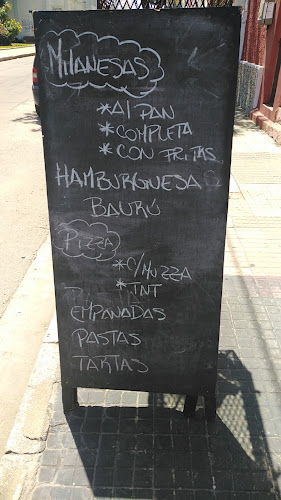 MILANESAS
*Al PAN
*COMPLETA
*CON FRITAS
HAMBURGUESA
BAURÚ
PIZZA
*C/MUZZA
*INT
EMPANADAS
PASTAS
TARTAS